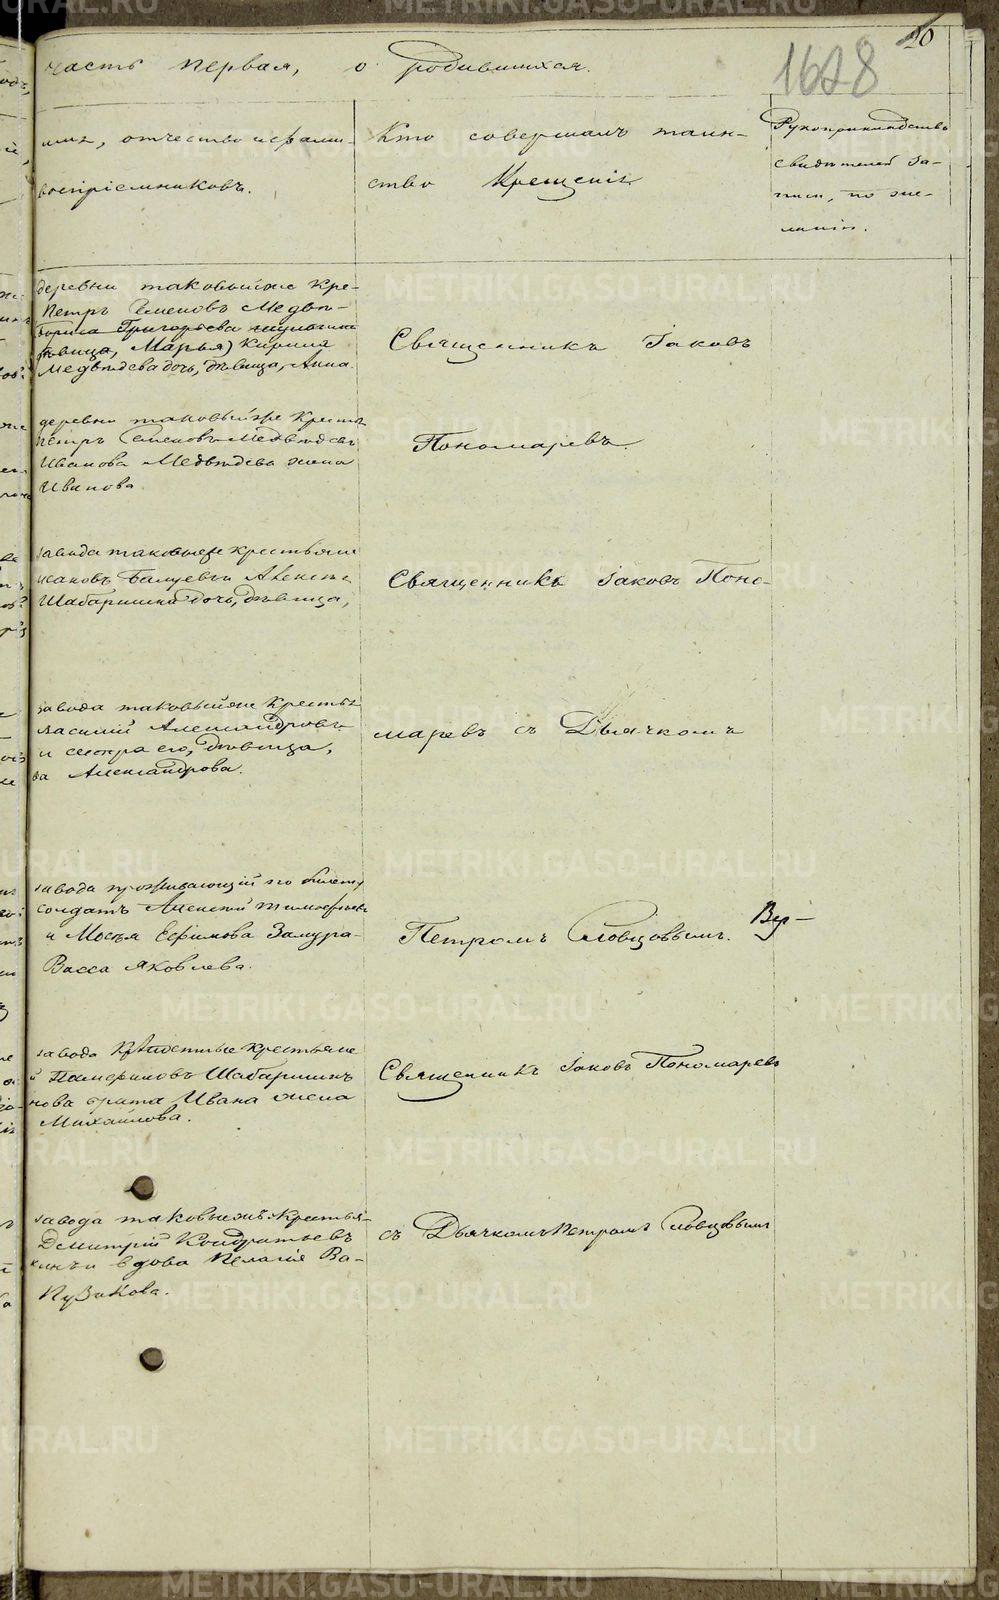 10
1628
часть первая, о родившихся.
имя, отчество и фами-
воспріемниковъ.
Кто совершалъ таин-
ство Крещенія
Рукоприкладство
свидѣтелей за-
писи, по же-
ланію.
деревни таковыйже Кре-
Петръ Семеновъ Медвѣ-
Бориса Григорьева
дѣвица, Марья) Кирила
Медвѣдева дочь, дѣвица, Анна.
Священникъ Іаковъ
деревни таковыйже Крестья
Петръ Семеновъ Медвѣдевъ
Иванова Медвѣдева жена
Иванова
Пономаревъ.
завода таковыеже крестьяне
Исаковъ
Шабаршина дочь, дѣвица,
Священникъ Іаковъ Поно-
завода таковыйже Крестья
Василий Александровъ
и сестра его, дѣвица,
ва Александрова.
маревъ съ Дьячкомъ
завода проживающій по билету
солдатъ Алексѣй
и Мосѣя Ефимова Замура-
Васса Яковлева.
Петромъ Словцовымъ. Вер-
завода Крѣпостные крестьяне
й Панфиловъ Шабаршинъ
нова брата Ивана жена
Михайлова.
Священникъ Іаковъ Пономаревъ
завода таковыежъ Крестья-
Демитрій Кондратьевъ
кинъ и вдова Пелагія Ва-
Пузакова.
съ Дьячкомъ Петромъ Словцовымъ
METRIKI.GASO-URAL.RU